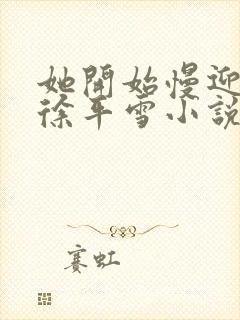 她開始慢迎
徐年雪小說
賽虹